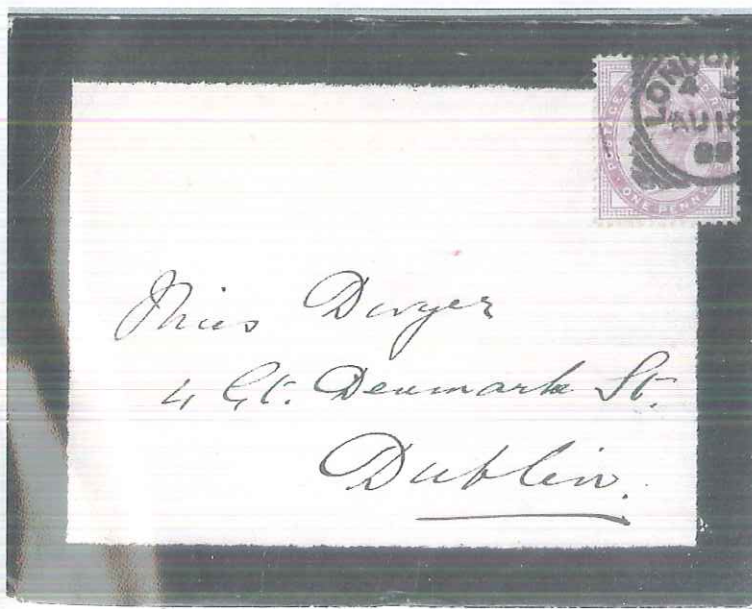 LONDON
4
AU 1
88
POSTAGE
ONE PENNY
Miss Dwyer
4 Gt. Denmark St.
Dublin.